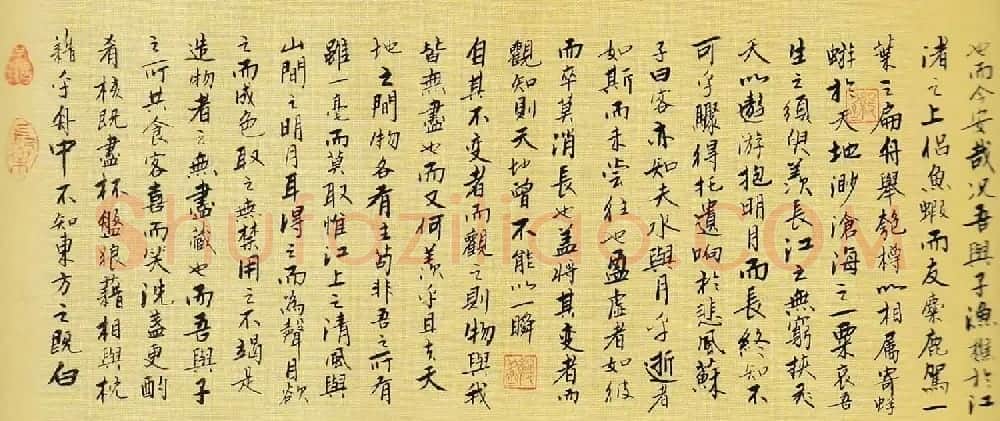 也而今安哉况吾與子漁樵於江
渚之上侶魚蝦而友麋鹿駕一
葉之扁舟舉匏樽以相属寄蜉
蝣於天地渺滄海之一粟哀吾
生之須臾羨長江之無窮挾飛
天以遨游抱明月而長終知不
可乎驟得托遺响於悲風蘇
子曰客亦知夫水與月乎逝者
如斯而未嘗往也盈虛者如彼
而卒莫消長也蓋將其變者而
觀知則天地曾不能以一瞬
自其不变者而觀之則物與我
皆無盡也而又何羨乎且夫天
地之間物各有主苟非吾之所有
雖一毫而莫取惟江上之清風與
山間之明月耳得之而為聲目欲
之而成色取之無禁用之不竭是
造物者之無盡藏也而吾與子
之所共食客喜而笑洗盞更酌
肴核既盡杯盤狼藉相與枕
藉乎舟中不知東方之既白
Shufaziliao.com